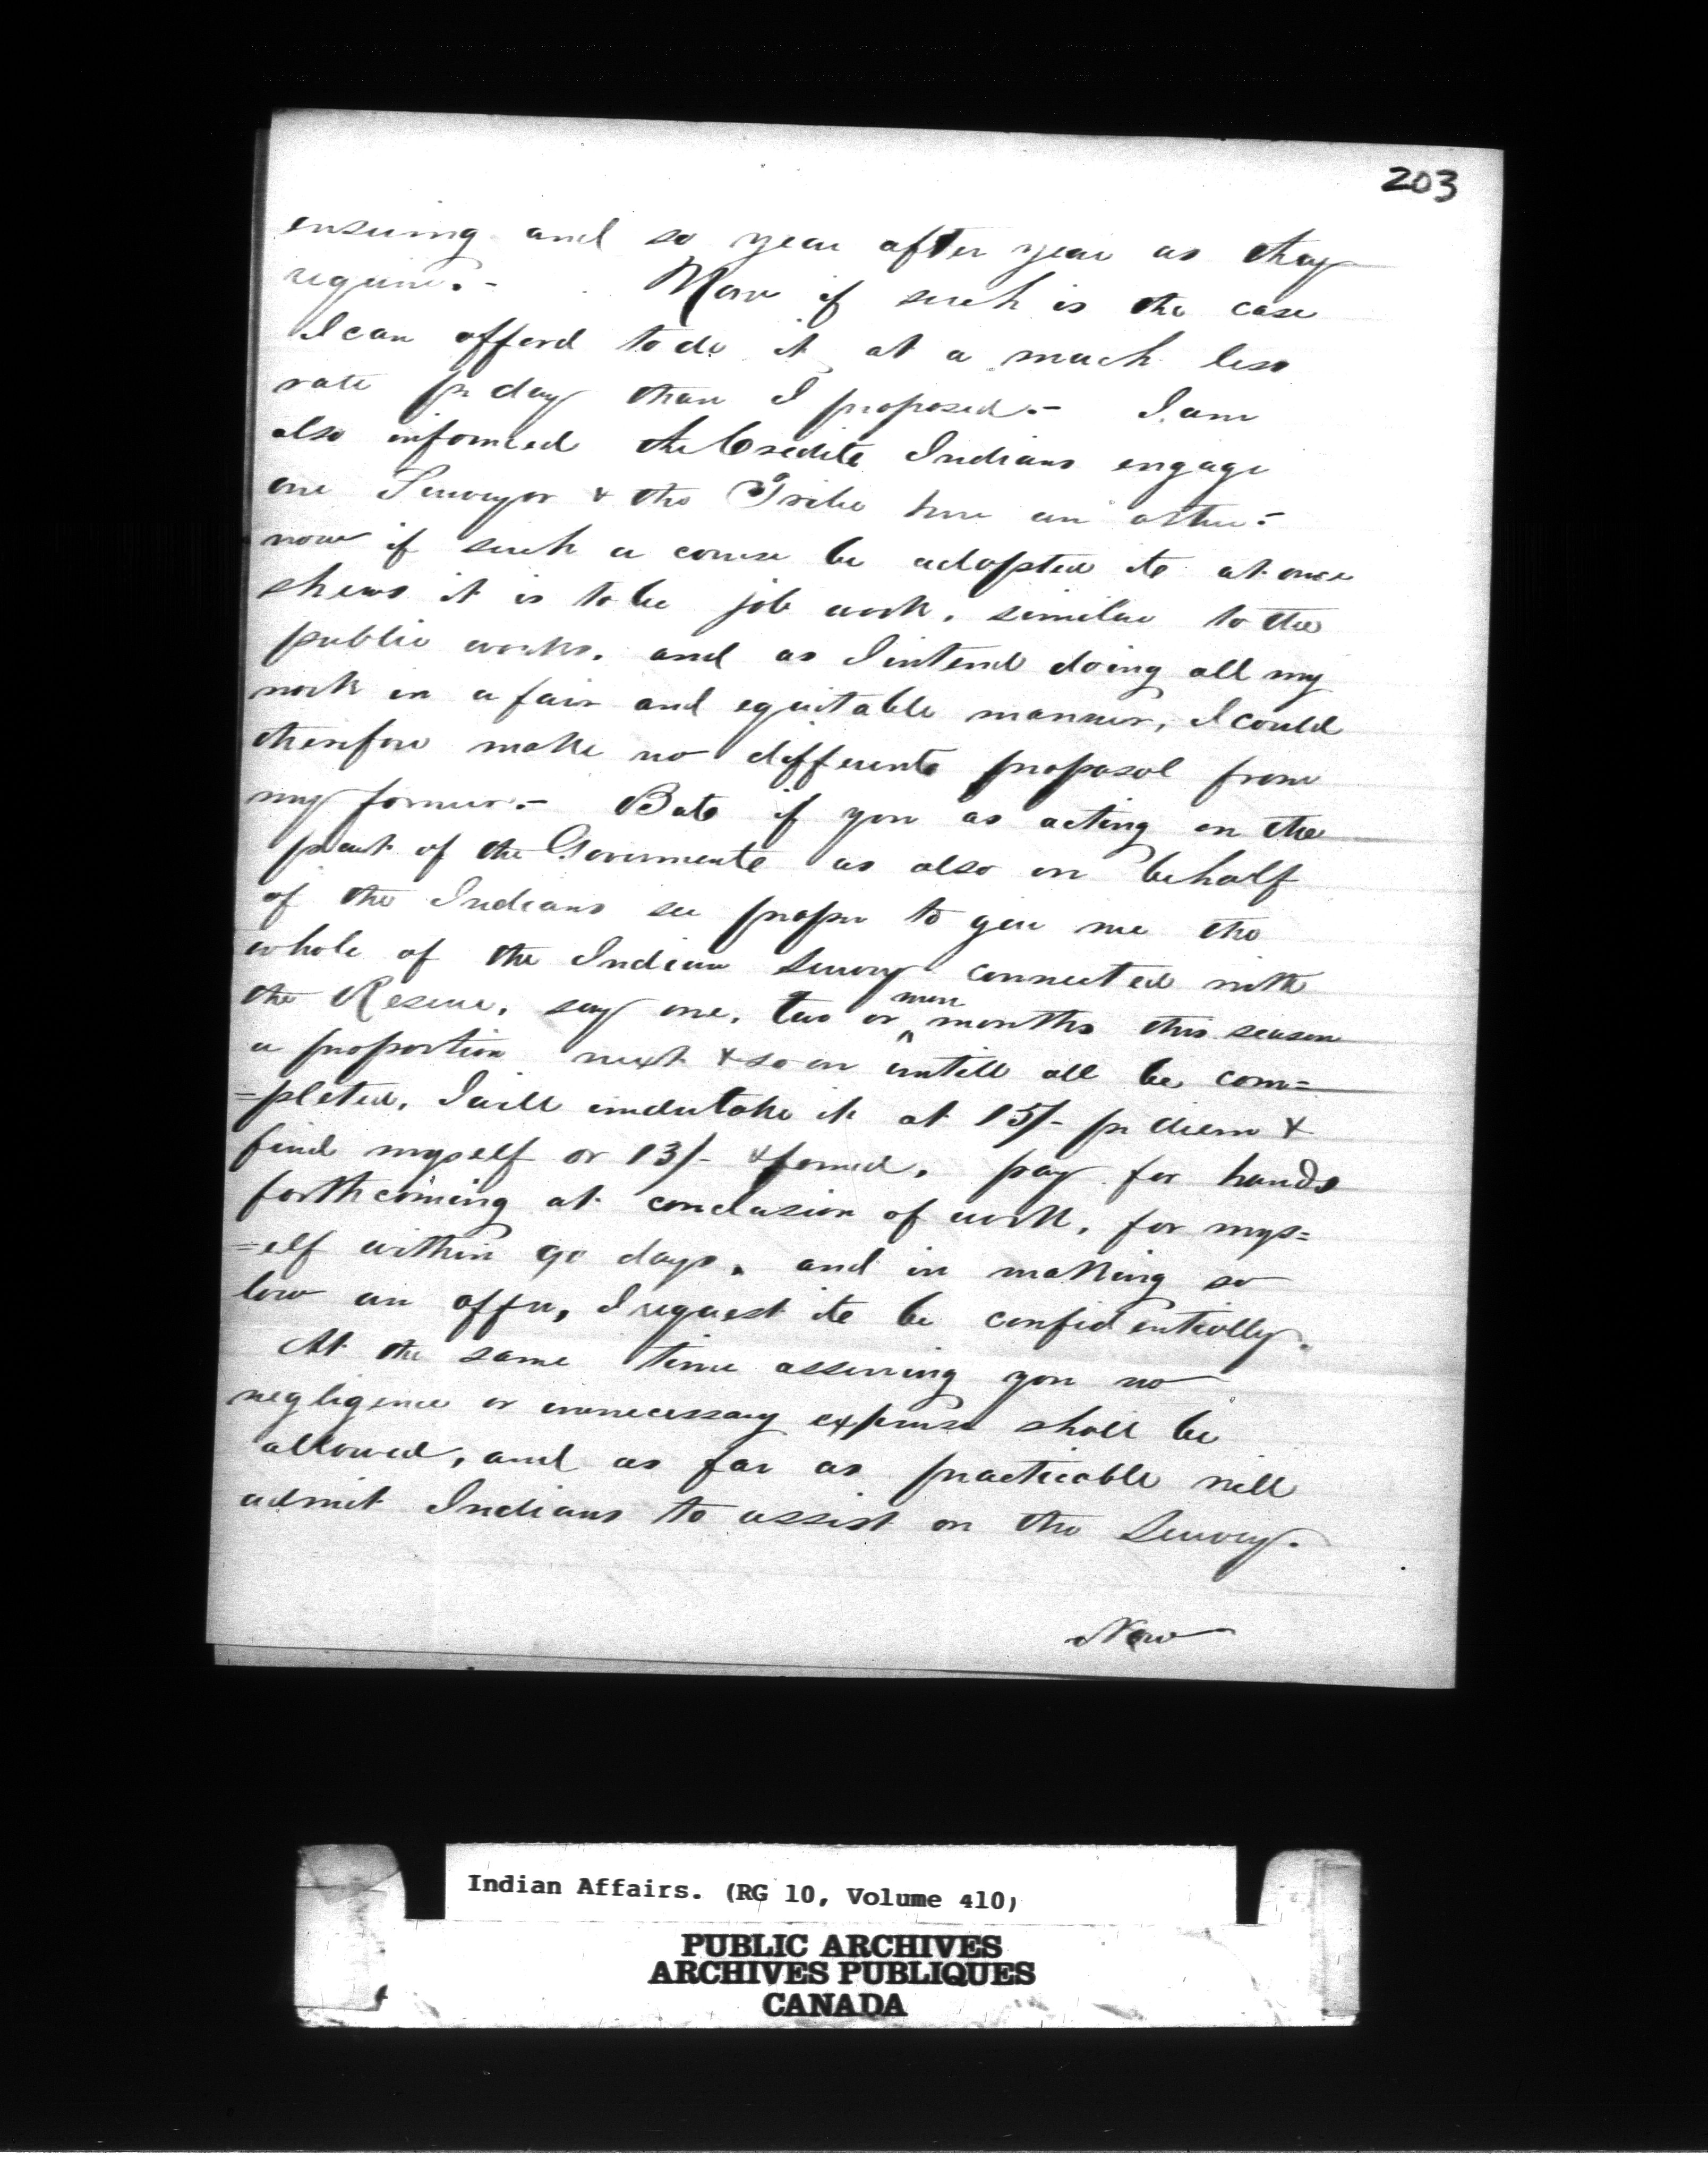 203
ensuing and so year after year as they
require.- Now if such is the case
I can afford to do it at a much less
rate pr day than I proposed.- I am
also informed the Credite Indians engage
one Surveyor & the Tribe here an other.-
now if such a course be adopted it at once
shews it is to be job work, similar to the
public works, and as I intend doing all my
work in a fair and equitable manner, I could
therefore make no different proposal from
my former.- But if you as acting on the
part of the Government as also on behalf
of the Indians see proper to give me the
whole of the Indian Survey connected with
the Reserve, say one, two or ^ more months this season
a proportion next & so on untill all be com=
=pleted, I will undertake it at 15/- pr diem &
find myself or 13/- & found, pay for hands
forthcoming at conclusion of work, for mys=
=elf within 90 days, and in making so
low an offer, I request it be confidentially.
At the same time assuring you no
negligence or unnecessary expense shall be
allowed, and as far as practicable will
admit Indians to assist on the Survey.
Now
Indian Affairs. (RG 10, Volume 410)
PUBLIC ARCHIVES
ARCHIVES PUBLIQUES
CANADA